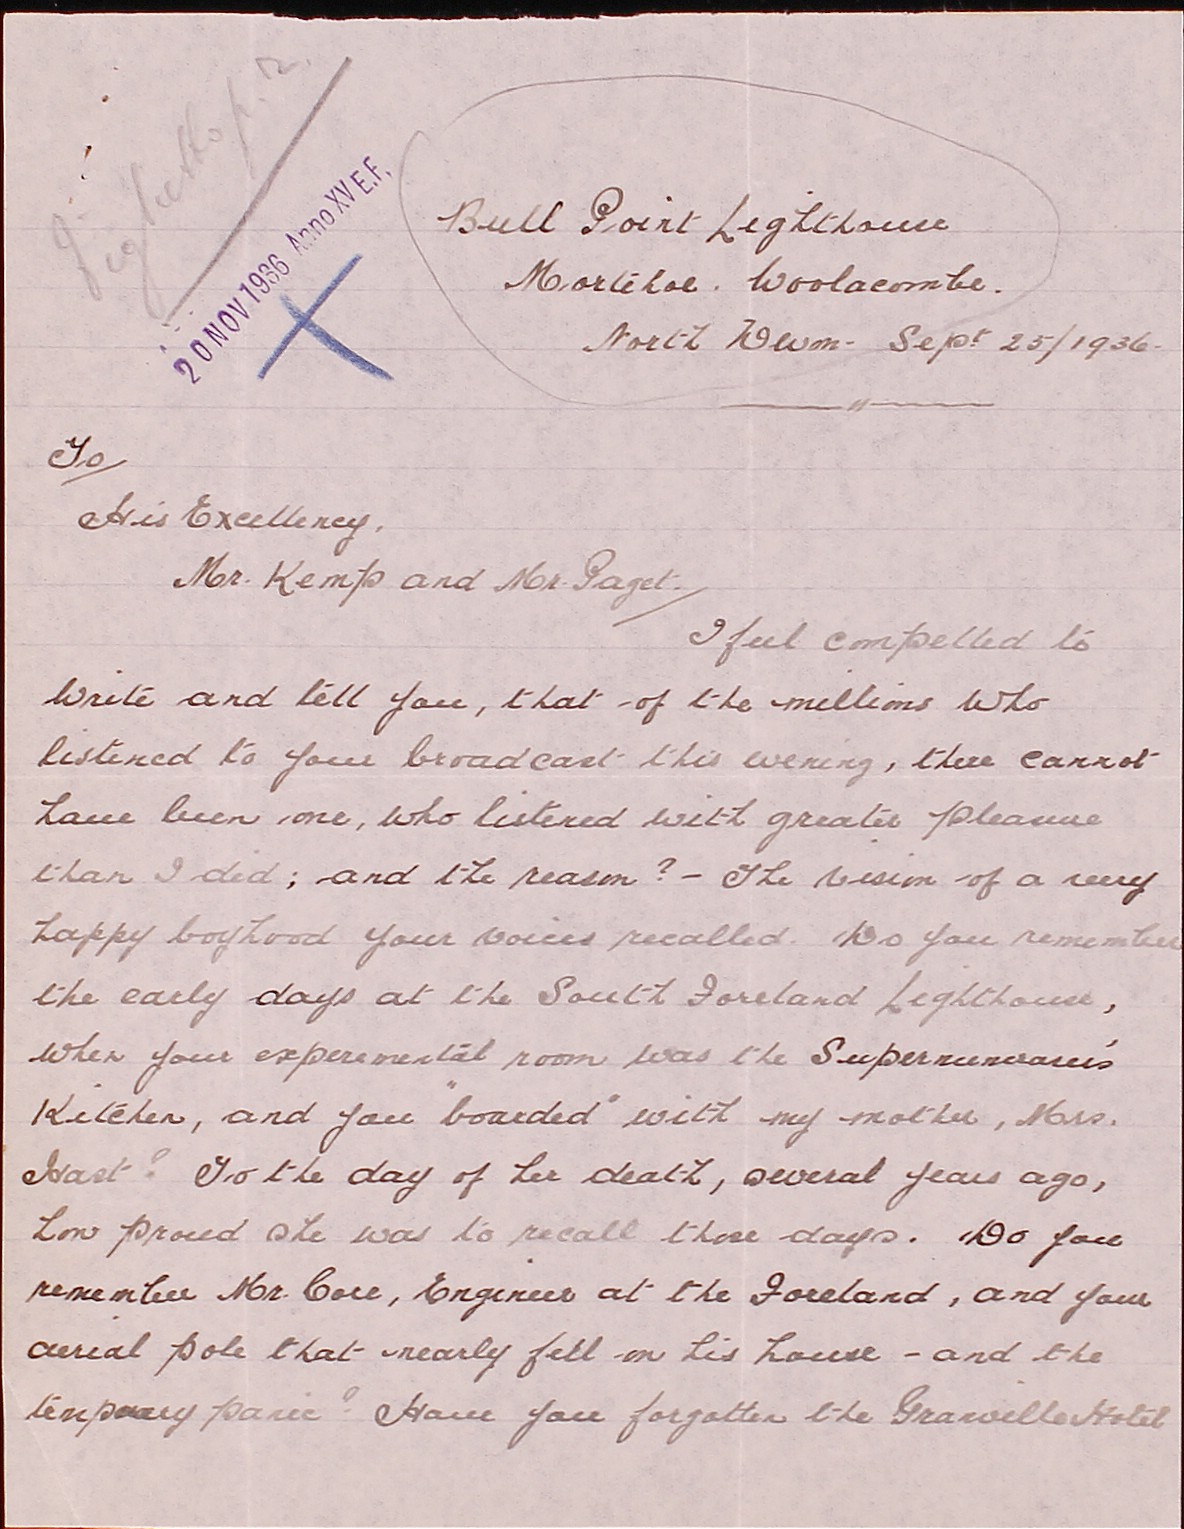 20 NOV 1936 Anno XV E.F.
Bull Point Lighthouse
Mortehoe. Woolacombe.
North Devon - Sept 25/1936-
To
His Excellency,
Mr. Kemp and Mr. Paget.
I feel compelled to
write and tell you, that of the millions who
listened to your broadcast this evening, there cannot
have been one, who listened with greater pleasure
than I did; and the reason? - The vision of a very
happy boyhood your voices recalled. Do you remember
the early days at the South Foreland Lighthouse,
when your experemental room was the Supernumerarie's
Kitchen, and you "boarded" with my mother, Mrs.
Hast? To the day of her death, several years ago,
how proud she was to recall those days. Do you
remember Mr. Core, Engineer at the Foreland, and your
aerial pole that nearly fell on his house - and the
panic? Have you forgotten the Granville Hotel